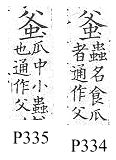 蟲名食瓜
者通作父
P334
瓜中小蟲
也通作父
P335